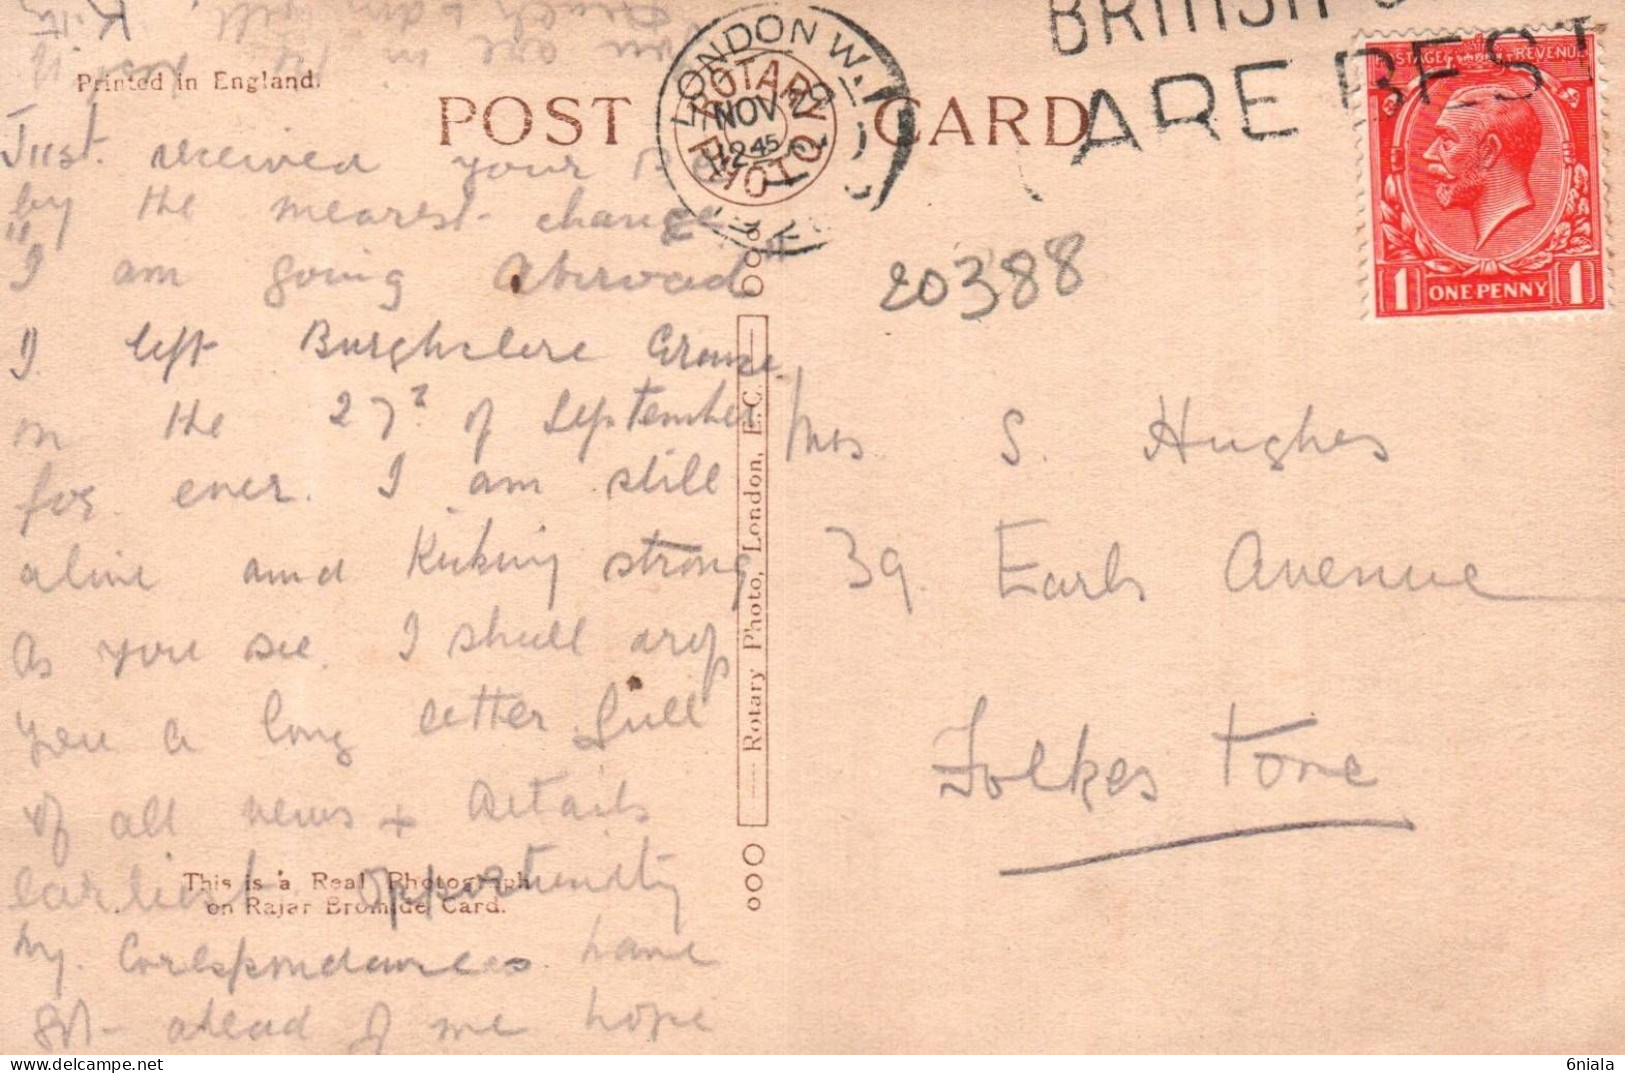 Printed in England.
POST CARD
LONDON W.1
NOV
12 45
ROTARY PHOTO
BRITISH
ARE BEST
POSTAGE REVENUE
1 ONE PENNY 1
20388
Just received your
by the mearest change
"I am going Abroad"
I left Burghclere Grange
on the 27? of September
for ever. I am still
alive and Kicking strong
As you see. I shall drop
you a long letter full
of all news + details
earliest opportunity
My Correspondances have
got ahead of me hope
you are in the best
of health I am well
Mrs S. Hughes
39. Earls Avenue
Folkestone
Rotary Photo, London, E.C.
This is a Real Photograph
on Rajar Bromide Card.
6niala